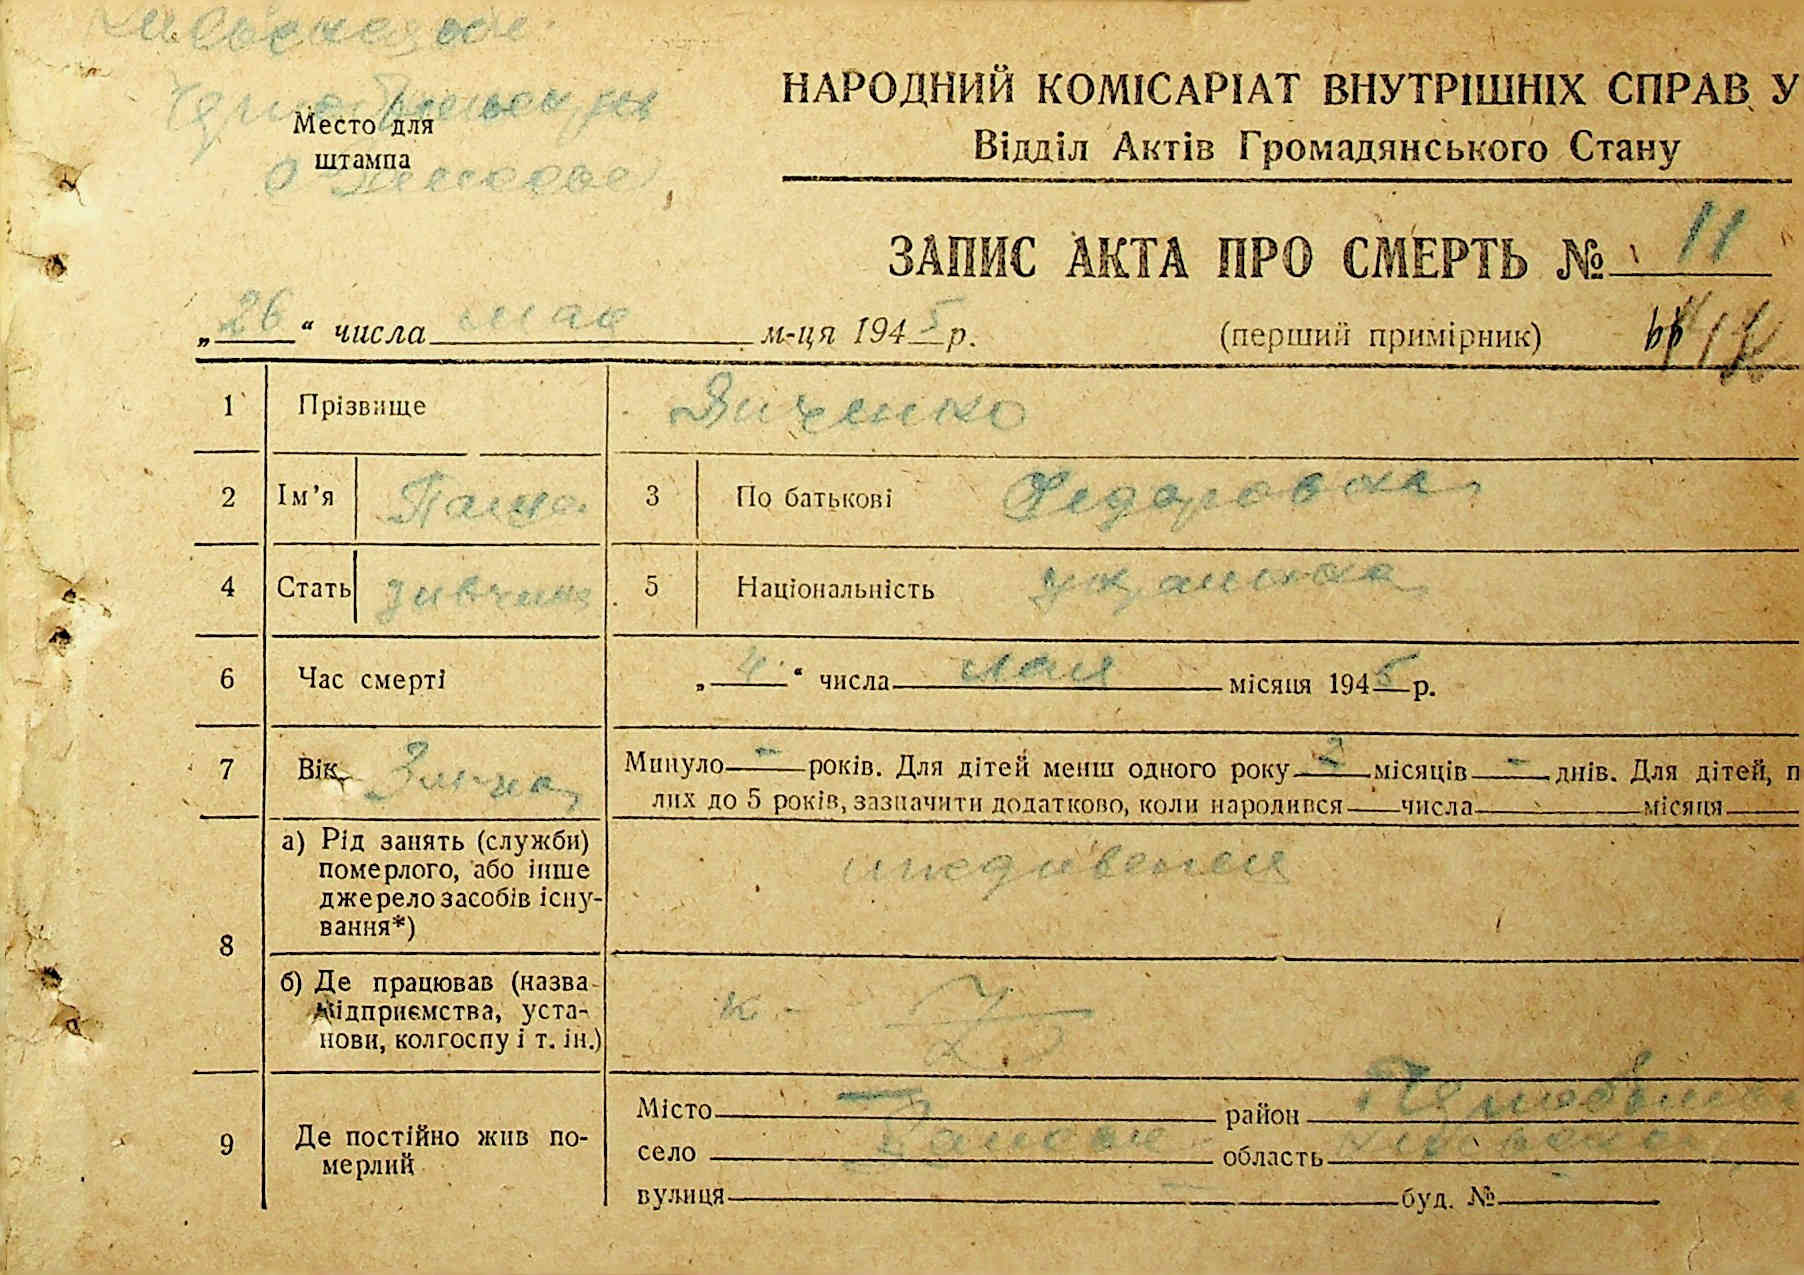 Место для
штампа
НАРОДНИЙ КОМІСАРІАТ ВНУТРІШНІХ СПРАВ У
Відділ Актів Громадянського Стану
ЗАПИС АКТА ПРО СМЕРТЬ № 11
„26“ числа мая м-ця 1945 р. (перший примірник)
1 Прізвище Зиченко
2 Ім’я Паша 3 По батькові Федоровна
4 Стать дивчина 5 Національність украинка
6 Час смерті „4“ числа мая місяця 1945 р.
7 Вік Минуло - років. Для дітей менш одного року місяців - днів. Для дітей, п
лих до 5 років, зазначити додатково, коли народився числа місяця
8 а) Рід занять (служби)
померлого, або інше
джерело засобів існу-
вання*)
иждивенец
б) Де працював (назва
підприємства, уста-
нови, колгоспу і т. ін.)
9 Де постійно жив по-
мерлий
Місто — район
село область
вулиця буд. №